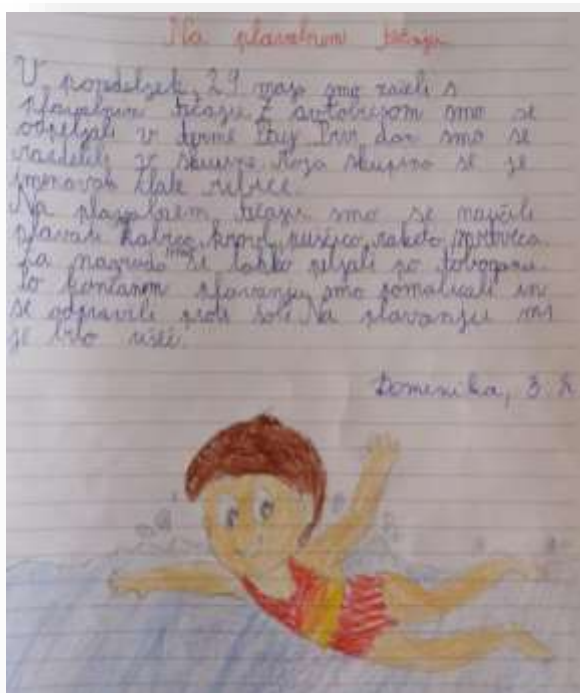 Na plavalnem tečaju
V ponedeljek, 29 maja smo začeli s
plavalnim tečaju Z avtobusom smo se
odpeljali v terme Prvi dan smo se
razdelili v skupine. Moja skupina se je
imenovala zlate ribice.
Na plavalnem tečaju smo se naučili
plavati žabico, kravl, puščico, raketo, mrtveca.
Za nagrado smo se lahko peljali po toboganu.
Po končanem plavanju smo pomalicali in
se odpravili proti šoli. Na plavanju mi
je bilo všeč.
Domenika, 3. R